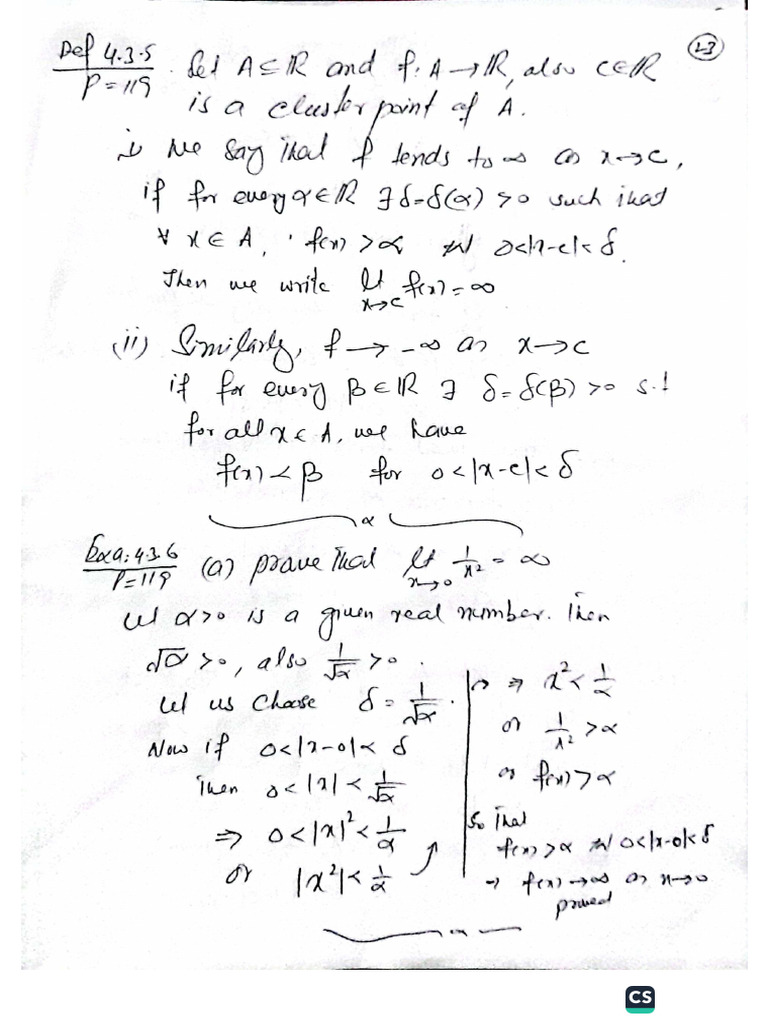 23
Def 4.3.5
P=119
Let A ⊆ ℝ and f: A → ℝ, also c ∈ ℝ
is a cluster point of A.
i) We say that f tends to ∞ as x→c,
if for every α ∈ ℝ ∃ δ=δ(α) >0 such that
∀ x ∈ A, f(x) >α 0<|x-c|<δ.
Then we write lt x→c f(x) = ∞
(ii) Similarly, f → -∞ as x→c
if for every β ∈ ℝ ∃ δ=δ(β) >0 s.t
for all x ∈ A, we have
f(x) < β for 0<|x-c|<δ
Exa: 4.3.6
P=119
(a) prove that lt x→0 1/x² = ∞
Let α>0 is a given real number. Then
√α >0, also 1/√α >0.
Let us choose δ = 1/√α.
Now if 0<|x-0|< δ
Then 0<|x|< 1/√α
⇒ 0<|x|²< 1/α
or |x²|< 1/α
⇒ x² < 1/α
or 1/x² >α
or f(x) >α
So that
f(x) >α 0<|x-0|<δ
→ f(x)→∞ as x→0
proved
CS